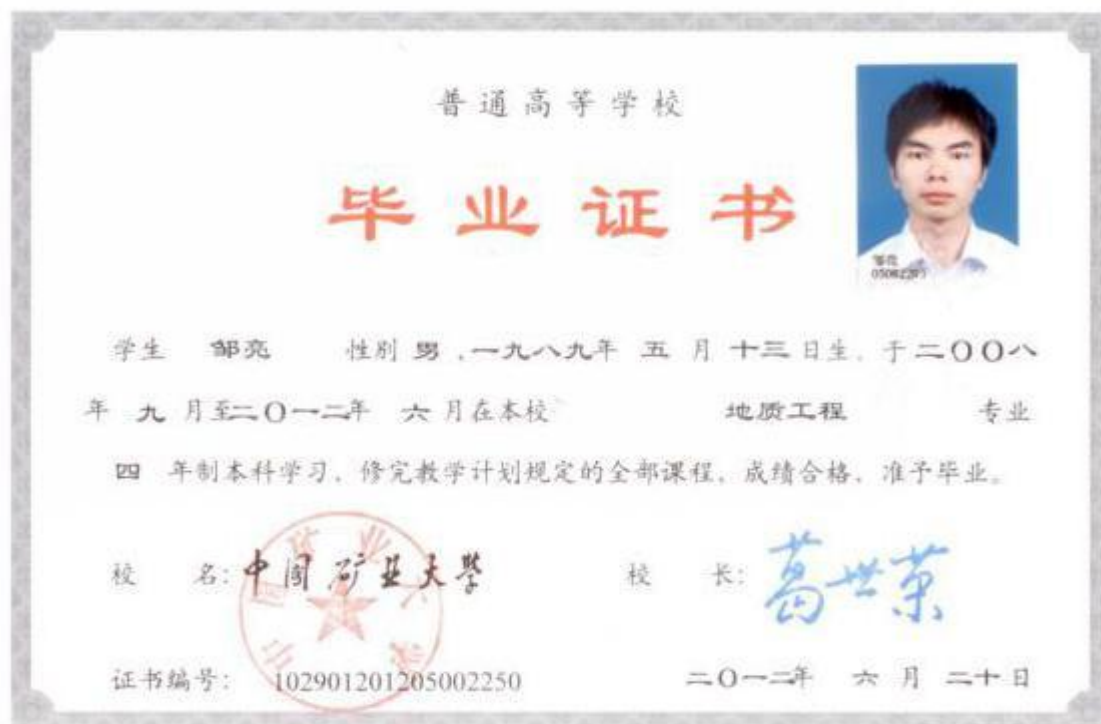 普通高等学校
毕业证书
邹亮
05082203
学生 邹亮 性别 男，一九八九年 五 月 十三 日生，于 二〇〇八
年 九 月至二〇一二年 六 月在本校 地质工程 专业
四 年制本科学习，修完教学计划规定的全部课程，成绩合格，准予毕业。
校 名：中国矿业大学 校 长：葛世荣
中国矿业大学
证书编号： 102901201205002250 二〇一二年 六 月 二十 日